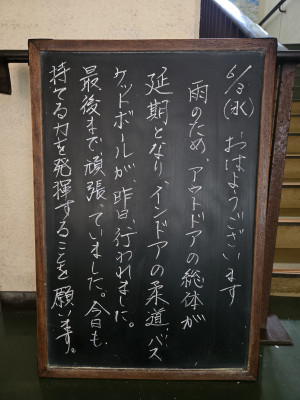 6/3(水) おはようございます
雨のため、アウトドアの総体が
延期となり、インドアの柔道、バス
ケットボールが、昨日、行われました。
最後まで、頑張っていました。今日も
持てる力を発揮することを願います。